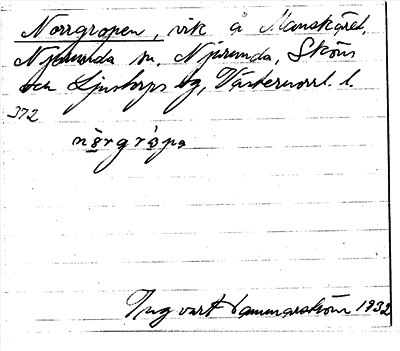 Norrgropen, vik å Manskäret,
Njurunda sn, Njurunda, Sköns
och Ljustorps tg, Västernorrl. l.
372
nörgröpa
Ingvart Hammarström 1932